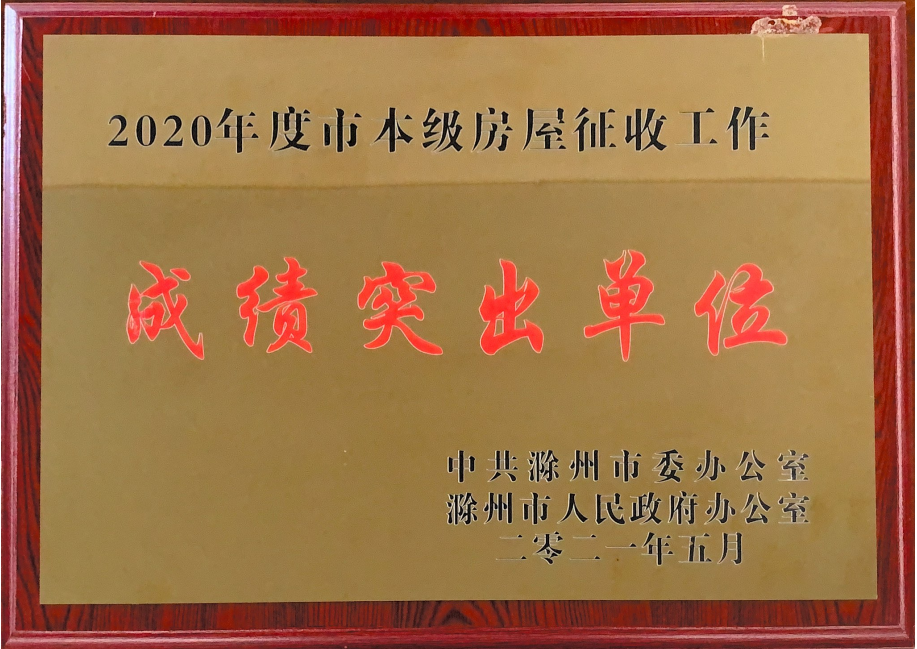 2020年度市本级房屋征收工作
成绩突出单位
中共滁州市委办公室
滁州市人民政府办公室
二零二一年五月